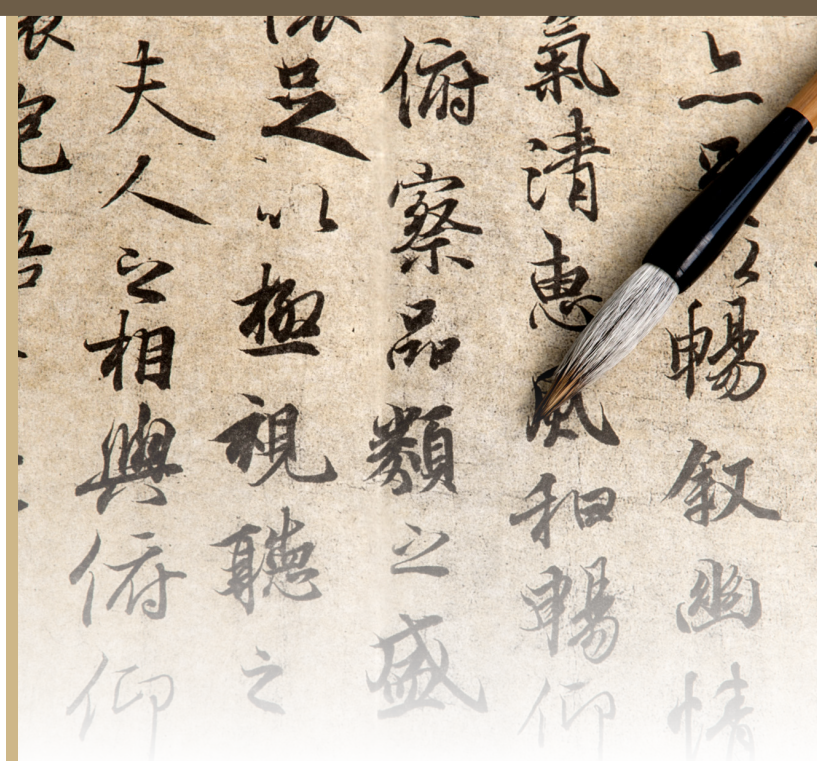 亦足以暢叙幽情
氣清惠風和暢仰
俯察品類之盛
懷足以極視聽之
夫人之相與俯仰